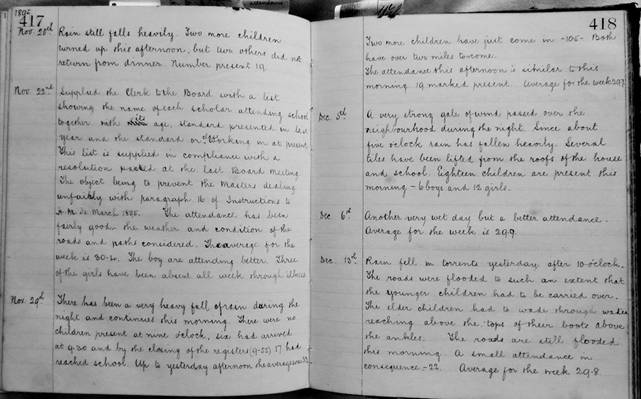 417
Nov. 20th Rain still falls heavily. Two more children
turned up this afternoon, but two others did not
return from dinner. Number present 19.
Nov. 22nd Supplied the Clerk to the Board with a list
showing the name of each scholar attending school
together with age, standard presented in last
year and the standard or working in at present
This list is supplied in compliance with a
resolution passed at the last Board Meeting
The object being to prevent the Masters dealing
unfairly with paragraph 16 of Instructions to
March 1885. The attendance has been
fairly good the weather and condition of the
roads and paths considered. The average for the
week is 30.4. The boy are attending better. Three
of the girls have been absent all week through illness
Nov. 29th There has been a very heavy fall of rain during the
night and continues this morning. There were no
children present at nine o'clock, six had arrived
at 9.30 and by the closing of the registers (9-55) 17 had
reached school. Up to yesterday afternoon the average was
418
Two more children have just come in -10.5- Both
have over two miles to come.
The attendance this afternoon is similar to this
morning 19 marked present. Average for the week 29.7
Dec. 5th A very strong gale of wind passed over the
neighbourhood during the night. Since about
five o'clock rain has fallen heavily. Several
tiles have been lifted from the roofs of the house
and school. Eighteen children are present this
morning - 6 boys and 12 girls.
Dec 6th Another very wet day but a better attendance.
Average for the week is 29.9.
Dec. 13th Rain fell in torrents yesterday after 10 o'clock.
The roads were flooded to such an extent that
the younger children had to be carried over.
The elder children had to wade through water
reaching above the tops of their boots above
the ankles. The roads are still flooded
this morning. A small attendance in
consequence - 22. Average for the week 29.8.